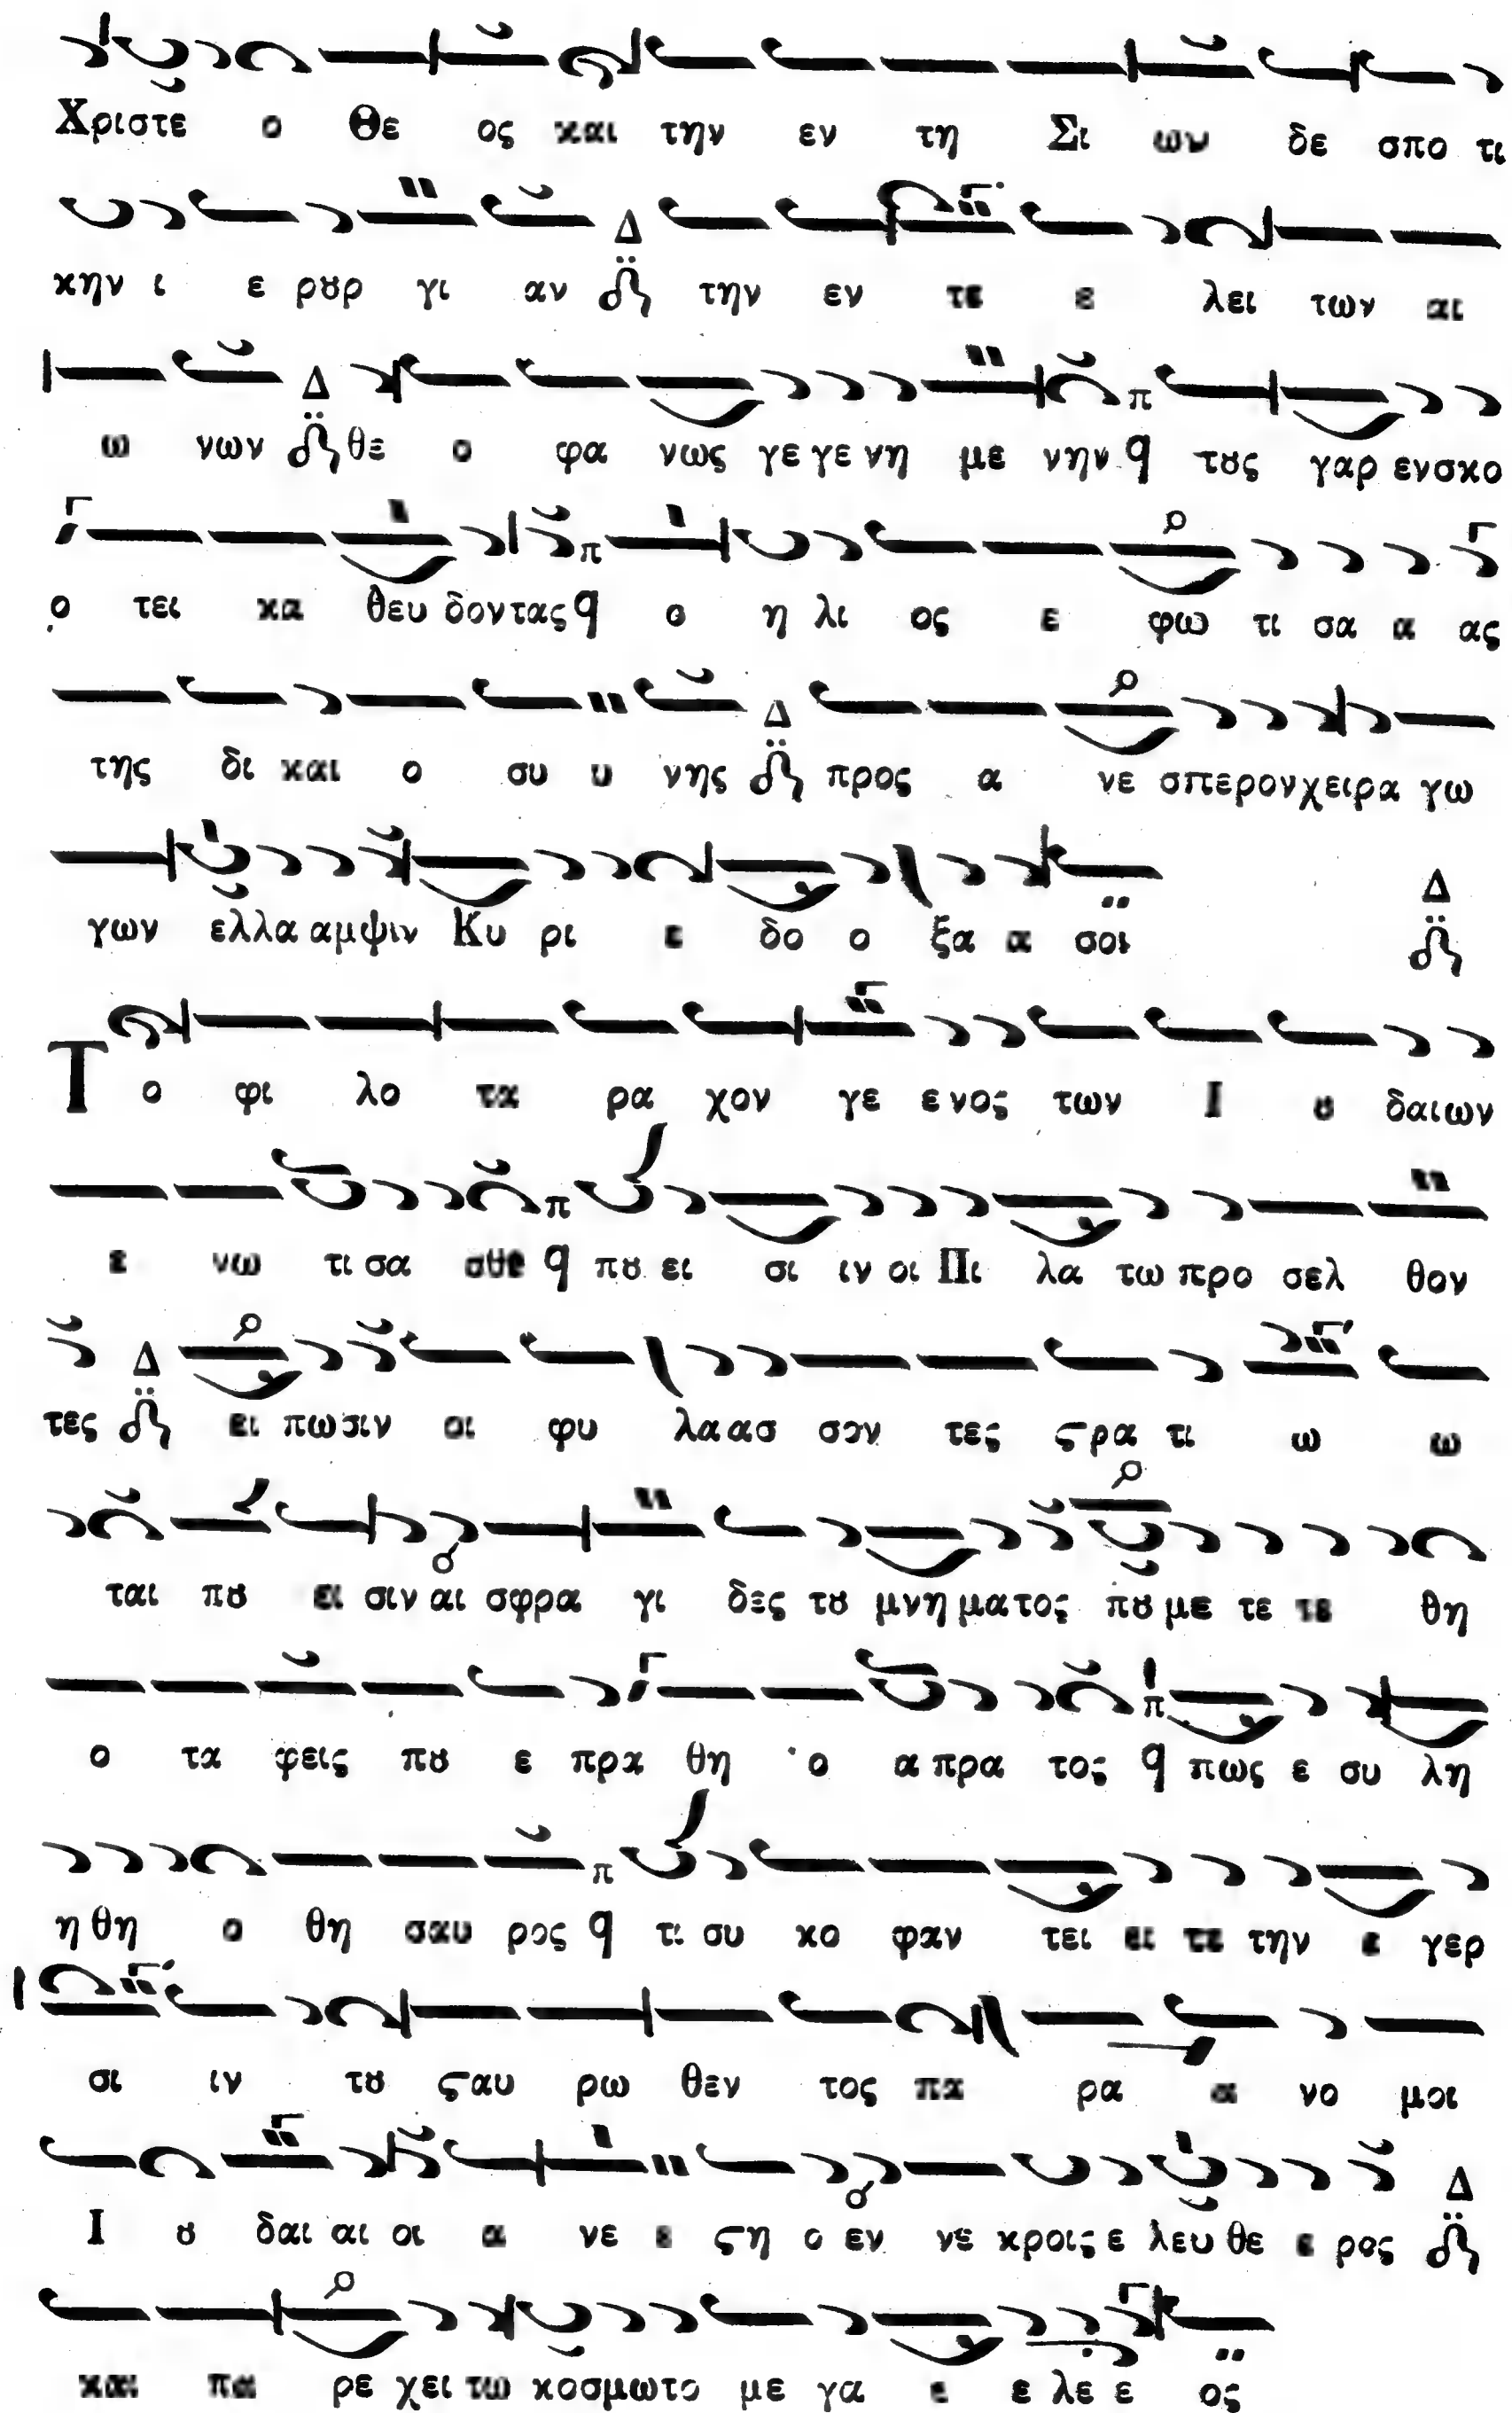 Χριστε ο Θε ος και την εν τη Σι ων δε σπο τι
κην ι ε ρȣρ γι αν Δ την εν τε ε λει των αι
ω νων Δ θε ο φα νως γε γε νη με νην π ϥ τȣς γαρ εν σκο
ο τει κα θευ δον τας π ϥ ο η λι ος ε φω τι σα α ας
της δι και ο συ υ νης Δ προς α νε σπε ρον χει ρα γω
γων ελ λα αμ ψιν Κυ ρι ε δο ο ξα α σοι Δ
Το φι λο τα ρα χον γε ε νος των Ι ȣ δαι ων
ε νω τι σα σθε π ϥ πȣ ει σι ιν οι Πι λα τω προ σελ θον
τες Δ ει πω σιν οι φυ λα ασ σον τες ϛρα τι ω ω
ται πȣ ει σιν αι σφρα γι δες τȣ μνη μα τος πȣ με τε τε θη
ο τα φεις πȣ ε πρα θη ο α πρα τος π ϥ πως ε συ λη
η θη ο θη σαυ ρος π ϥ τι συ κο φαν τει ει τε την ε γερ
σι ιν τȣ ϛαυ ρω θεν τος πα ρα α νο μοι
Ι ȣ δαι αι οι α νε ε ϛη ο εν νε κροις ε λευ θε ε ρος Δ
και πα ρε χει τω κοσ μω το με γα ε ε λε ε ος